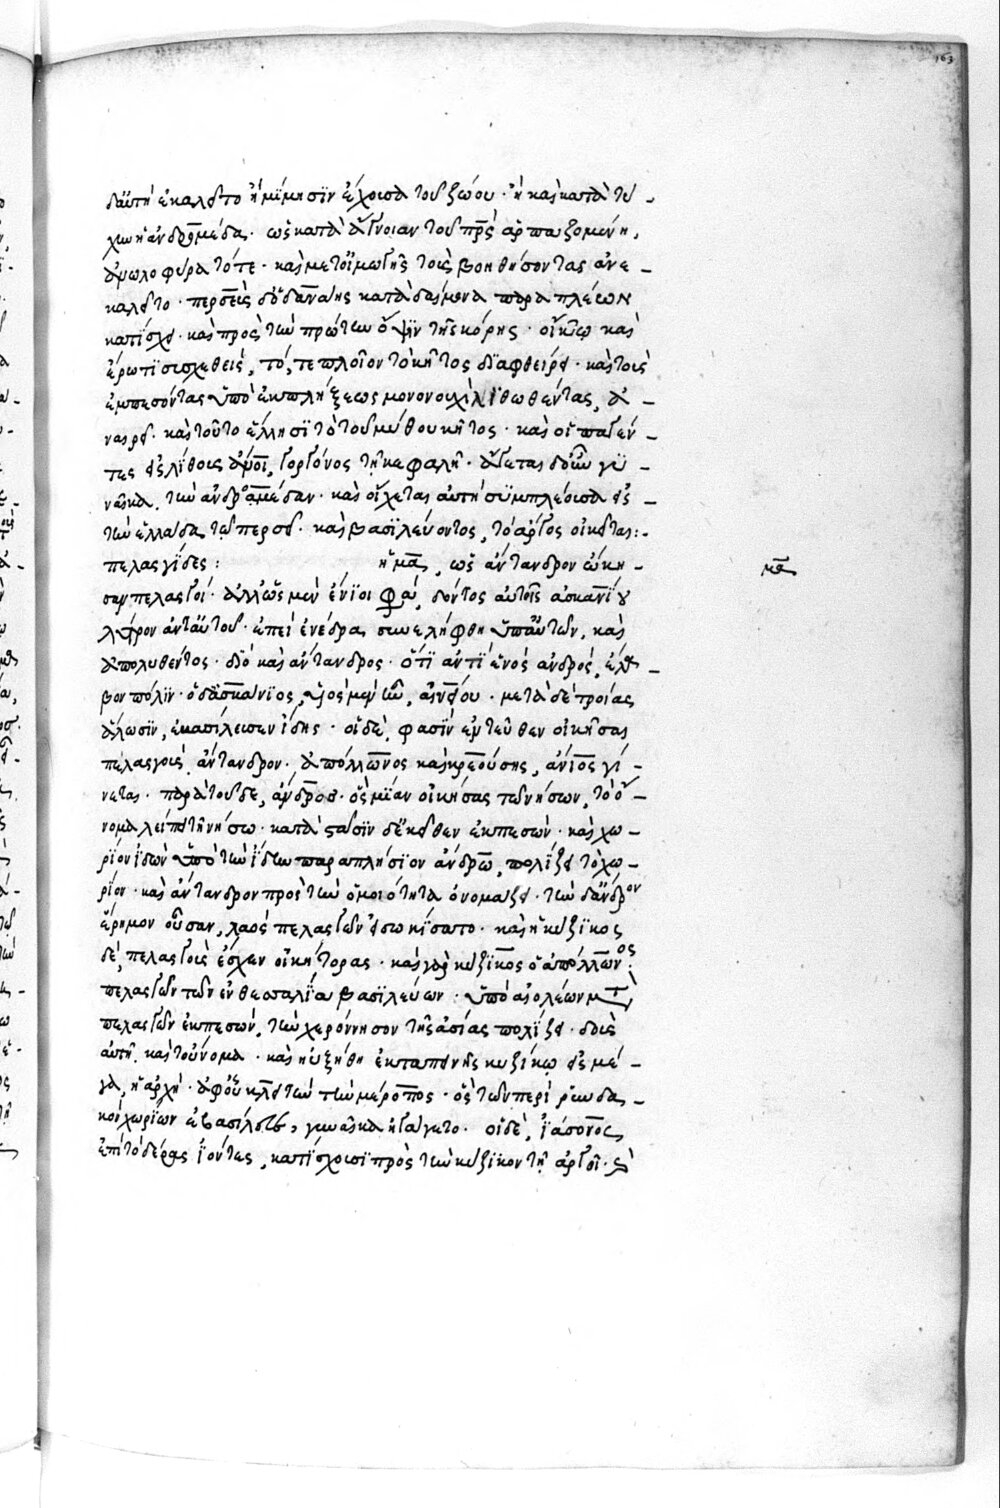 163
δαύτη ἐκαλεῖτο ἢ μίμησιν ἔχουσα τοῦ ζώου · ἢ καὶ κατὰ τύ -
χην ἀνδρομέδα · ὡς κατὰ ἄγνοιαν τοῦ πρς ἁρπαζομένη,
ἀνωλοφύρατό τε · καὶ μετ' οἰμωγῆς τοὺς βοηθήσοντας ἀνε -
καλεῖτο · περσεὺς δὲ ὁ δανάης κατὰ δαίμονα παραπλέων
κατίσχει · καὶ πρὸς τὴν πρώτην ὄψιν τῆς κόρης · οἴκτῳ καὶ
ἔρωτι συσχεθεὶς, τό, τε πλοῖον τὸ κῆτος διαφθείρει · καὶ τοὺς
ἐμπεσόντας ὑπὸ ἐκπλήξεως μονονουχὶ λιθωθέντας, ἀ -
ναιρεῖ · καὶ τοῦτο ἕλλησι τὸ τοῦ μύθου κῆτος · καὶ οἱ παγέν -
τες εἰς λίθους ἄνοι, γοργόνος τῇ κεφαλῇ · ἄγεται δ' οὖν γυ -
ναῖκα τὴν ἀνδρομέδαν · καὶ οἴχεται αὐτὴ συμπλέουσα εἰς
τὴν ἑλλάδα τῷ περσεῖ · καὶ βασιλεύοντος, τὸ ἄργος οἰκεῖται: -
πελασγίδες : ἡ μα, ὡς ἄντανδρον ᾤκη -
σαν πελασγοί · ἀλλ' ὡς μὲν ἔνιοι φα, δόντος αὐτοῖς ἀσκανίου
λύτρον ἀνταὑτοῦ · ἐπεὶ ἐνέδρα συνελήφθη ὑπ' αὐτῶν, καὶ
ἀπολυθέντος · διὸ καὶ ἄντανδρος · ὅτι ἀντὶ ἑνὸς ἀνδρὸς, ἔλα -
βον πόλιν · ὁ δ' ἀσκάνιος, υἱὸς μὲν ἦν, αἰνείου · μετὰ δὲ τροίας
ἅλωσιν, ἐβασίλευσεν ἴδης · οἱ δὲ, φασὶν ἐντεῦθεν οἰκῆσαι
πελασγοὺς ἄντανδρον · ἀπόλλωνος καὶ κρεούσης, ἄνιος γί -
νεται · παρὰ τοῦδε, ἄνδρος · ὃς μίαν οἰκήσας τῶν νήσων, τὸ ὄ -
νομα λείπει τῇ νήσῳ · κατὰ στάσιν δ' ἐκεῖθεν ἐκπεσὼν · καὶ χω -
ρίον ἰδὼν ὑπὸ τὴν ἴδην παραπλήσιον ἄνδρῳ, πολίζει τὸ χω -
ρίον · καὶ ἄντανδρον πρὸς τὴν ὁμοιότητα ὀνομάζει · τὴν δ' ἄνδρον
ἔρημον οὖσαν, λαὸς πελασγῶν εἰσῳκίσατο · καὶ ἡ κύζικος
δὲ, πελασγοὺς ἔσχεν οἰκήτορας · καὶ γὰρ κύζικος ὁ ἀπόλλωνος :
πελασγῶν τῶν ἐν θεσσαλία βασιλεύων · ὑπὸ αἰολέων μτ
πελασγῶν ἐκπεσὼν, τὴν χερόννησον τῆς ἀσίας πολίζει · δοὺς
αὐτῇ καὶ τοὔνομα · καὶ ηὐξήθη ἐκ ταπεινῆς κυζίκῳ εἰς μέ -
γα, ἡ ἀρχή · ἀφ' οὗ κλείτην τὴν μέροπος · ὃς τῶν περὶ ῥύνδα -
κον χωρίων ἐβασίλευε, γυναῖκα ἠγάγετο · οἱ δὲ, ἰάσονος
ἐπὶ τὸ δέρας ἰόντες, κατίσχουσι πρὸς τὴν κύζικον τῇ ἀργοῖ · καὶ